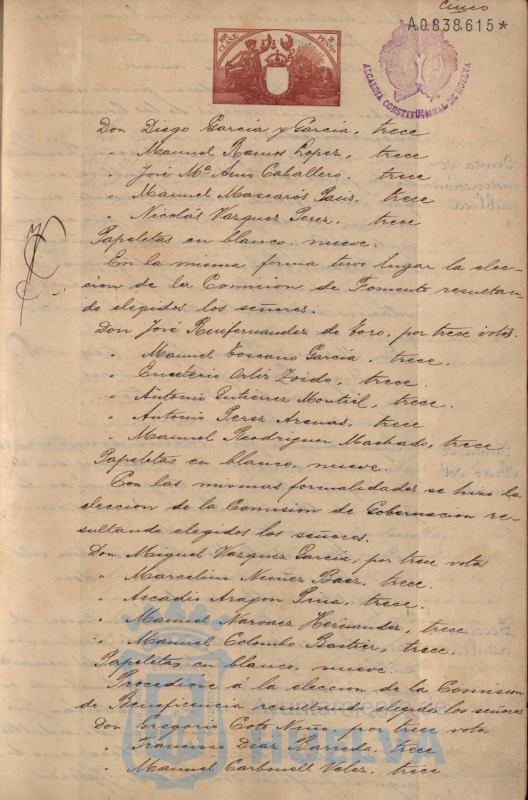 Cinco
A0.838.615*
10ª CLASE 2 PESETAS
ALCALDIA CONSTITUCIONAL DE HUELVA
Don Diego Garcia y Garcia, trece
" Manuel Ramos Lopez, trece
" José Mª Caballero, trece
" Manuel Mascarós Pais, trece
" Nicolás Vazquez Perez, trece
Papeletas en blanco, nueve.
En la misma forma tuvo lugar la elec-
cion de la Comision de Fomento resultan-
do elegidos los señores:
Don José Renfernandez de Toro, por trece votos.
" Manuel Toscano Garcia, trece.
" Emeterio Ortiz Zoido, trece.
" Antonio Gutierrez Montiel, trece.
" Antonio Perez Arenas, trece.
" Manuel Rodriguez Machado, trece
Papeletas en blanco, nueve.
Con las mismas formalidades se hizo la
eleccion de la Comision de Gobernacion re-
sultando elegidos los señores.
Don Miguel Vazquez Garcia, por trece votos
" Marcelino Nuñez Baez, trece.
" Arcadio Aragon, trece.
" Manuel Narvaez Hernandez, trece
" Manuel Colombo, trece.
Papeletas en blanco, nueve
Procediose á la eleccion de la Comision
de Beneficencia resultando elegidos los señores
Don Gregorio Coto Niño, por trece votos
" Francisco Diaz Barreda, trece
" Manuel Carbonell Velez, trece
HUELVA